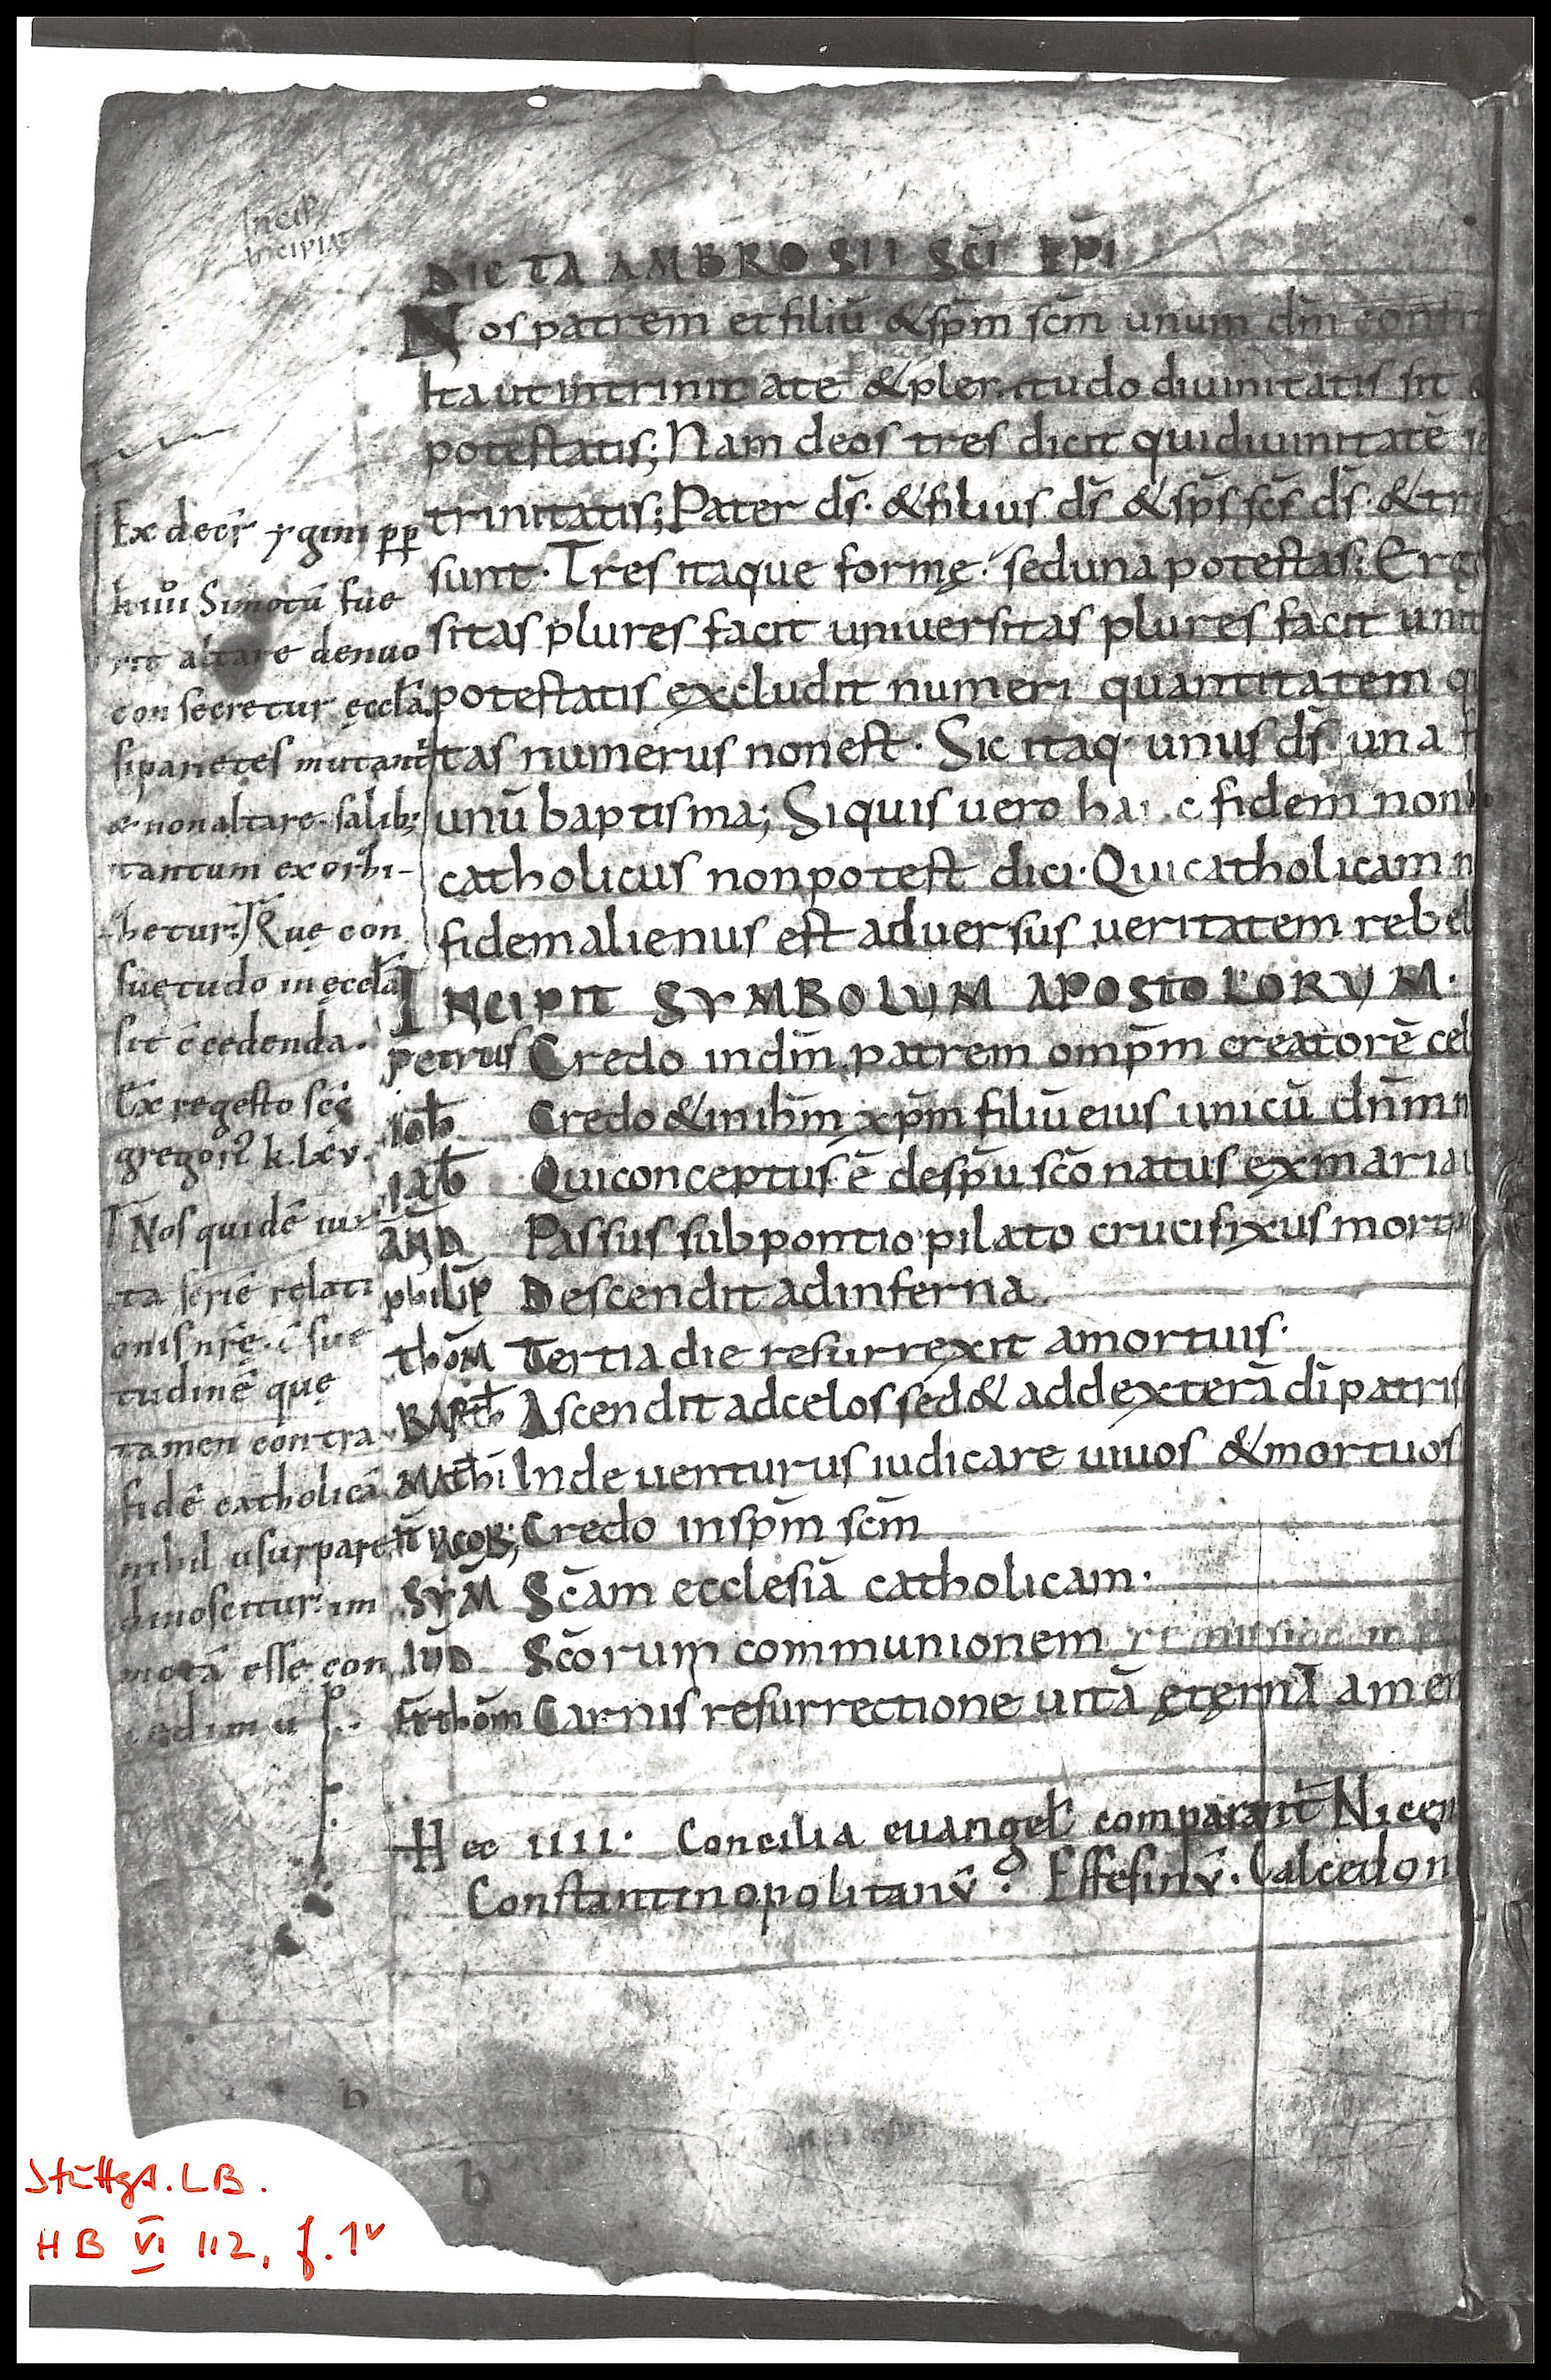 Incip
Incipiat
DICTA AMBROSII SCI EPI
Nos patrem et filiū & spm̄ scm̄ unum dm̄
Ita ut in trinitate & plenitudo diuinitatis sit
potestatis; Nam deos tres dicit qui diuinitatē
trinitatis; Pater ds̄. & filius ds̄ & sps̄ scs̄ ds̄. &
sunt. Tres itaque formę. sed una potestas; Erg
sitas plures facit uniuersitas plures facit unit
potestatis excludit numeri quantitatem
tas numerus non est. Sic itaq. unus ds̄ una
unū baptisma; Si quis uero hanc fidem non
catholicus non potest dici. Qui catholicam
fidem alienus est aduersus ueritatem rebel
INCIPIT SYMBOLUM APOSTOLORUM.
petrus Credo in dm̄ patrem omp̄m creatorē cel
Ioh̄ Credo & in ihm̄ xpm̄ filiū eius unicū dn̄m n
Iaƀ Qui conceptus ē de spū scō natus ex maria
AND Passus sub pontio pilato crucifixus mortu
philip̄ Descendit ad inferna.
thōm Tertia die resurrexit a mortuis.
BARth̄ Ascendit ad celos sed& ad dexterā dī patris
Math̄ Inde uenturus iudicare uiuos & mortuos
IŦ IACOB; Credo in spm̄ scm̄
SYM̄ Scām ecclesiā catholicam.
IUD Scōrum communionem remissionem
IŦ thōm Carnis resurrectione uitā ęternā amen
Hec IIII. Concilia euangel̄ comparant̄ Nicen
Constantinopolitanū. Effesinū. Calcedon
Ex decr̄ ygini pp
k iiii Si motū fue
rit altare denuo
consecretur ęcclā.
si parietes mutant̄
& non altare. salib;
tantum exorhi-
betur. Quę con
suetudo in ęcclā
sit c̄cedenda.
Ex regesto scī
gregorii k. lxv.
Nos quidē iux
ta seriē relati
onis nr̄ę. c̄sue
tudinē quę
tamen contra
fidē catholicā
nihil usurpare
dinoscitur. im
motā esse con
cedimus.
b
b
Stuttgt. LB.
HB VI 112, f. 1v